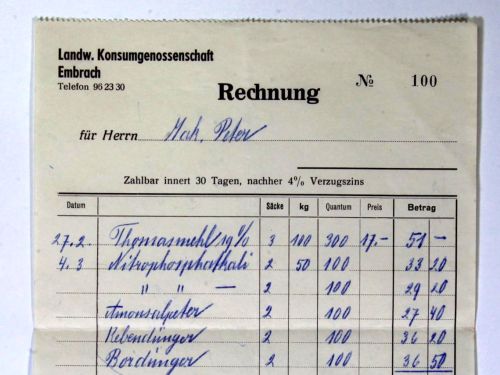 Landw. Konsumgenossenschaft
Embrach
Telefon 96 23 30
Rechnung
№ 100
für Herrn Mak. Peter
Zahlbar innert 30 Tagen, nachher 4% Verzugszins
Datum Säcke kg Quantum Preis Betrag
27.2. Thomasmehl 19% 3 100 300 17.- 51 —
4.3 Nitrophosphatkali 2 50 100 33 20
" " — 2 100 29 20
Amonsalpeter 2 100 27 40
Rebendünger 2 100 36 20
Bordünger 2 100 36 50